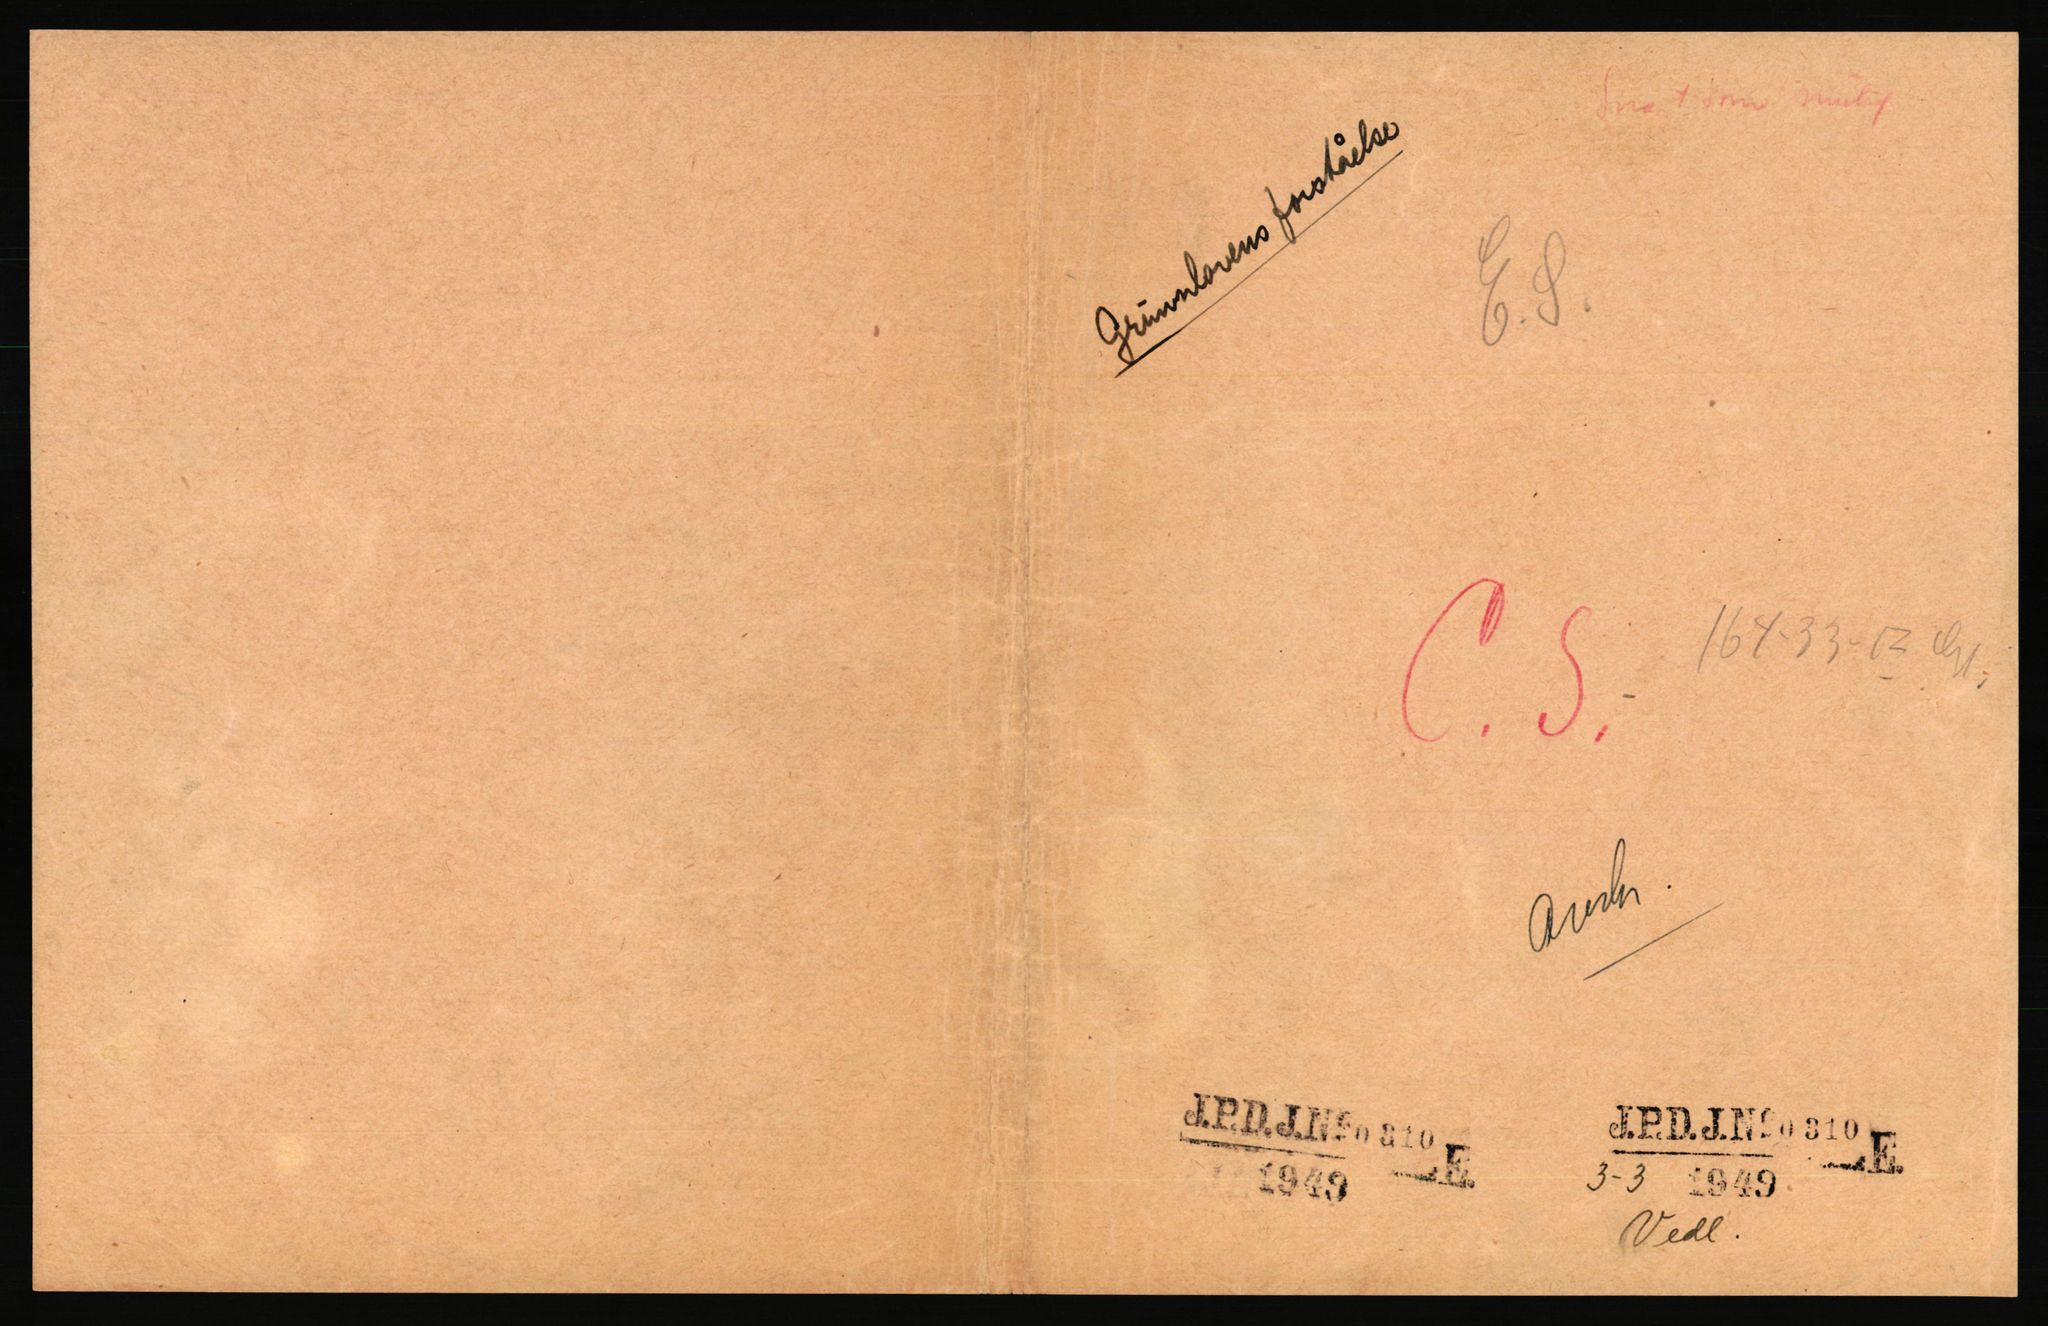 Snart som mulig
Grunnlovens forståelse
E. S.
C. S.
164-33-
J.P.D.J.Nº 0 310 E.
1949
J.P.D.J.Nº 0 310 E.
3-3 1949
Vedl.